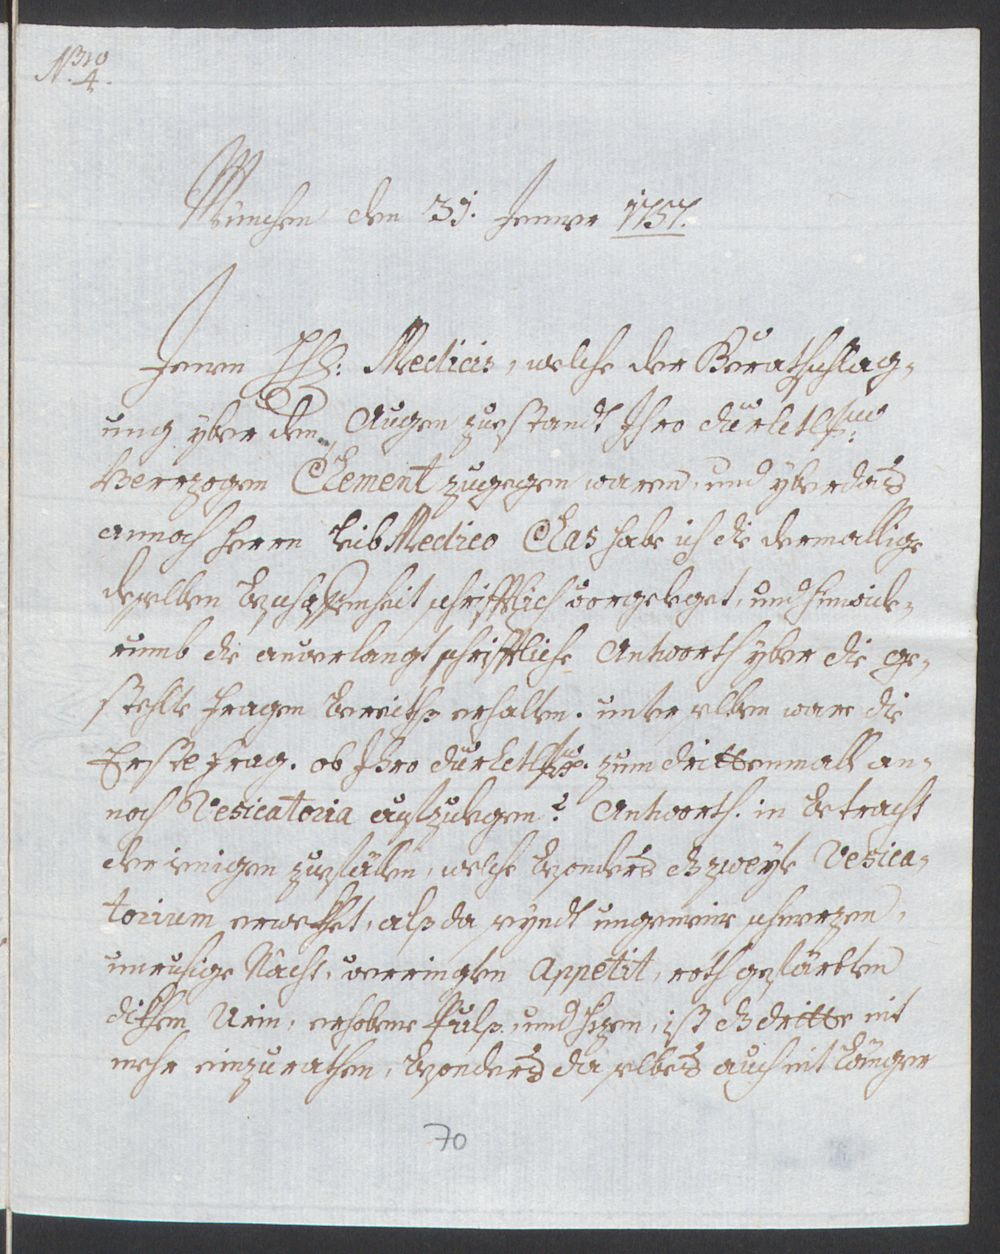 Nro 4.
München den 31. Jenner 1757.
Jenen HH: Medicis, welche der Berathschlag-
ung yber den Augen zuestandt Ihro dürletl
Herrzogen Clement zugegen waren, und yberdas
annoch Herrn leib Medico Clas habe ich die dermallige
deselben beschaffenheit schrifftlich vorgeleget, und hinwide-
rumb die anverlangt schrifftliche Antworth yber die ge-
stehlte fragen bereiths erhalten. unter selben ware die
Erste frag. ob Ihro dürletl zum drittenmall an-
noch Vesicatoria aufzulegen? Antworth. in betracht
der ienigen zuefällen, welche bsonders das zweyte Vesica-
torium erwekhet, alß da seyndt ungemeine schmerzen,
unruhige Nächt, verringten Appetit, roth gefärbten
dikhen Urin, erhobene Pulß, und hizen, ist das dritte nit
mehr einzurathen, bsonders da selbes auch nit länger
70